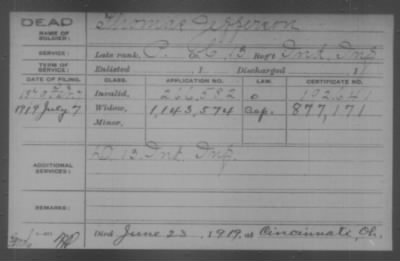 DEAD
NAME OF SOLDIER:
Thomas Jefferson
SERVICE:
Late rank, P. Co. 13 Reg't Ind. Inf.
TERM OF SERVICE:
Enlisted 1 Discharged 1
DATE OF FILING. CLASS. APPLICATION NO. LAW. CERTIFICATE NO.
Invalid, 266,582 192,641
1919 July 7 Widow, 1,143,574 877,171
Minor,
ADDITIONAL SERVICES:
D 13 Ind. Inf.
REMARKS:
Died June 23, 1919, at Cincinnati, Oh.